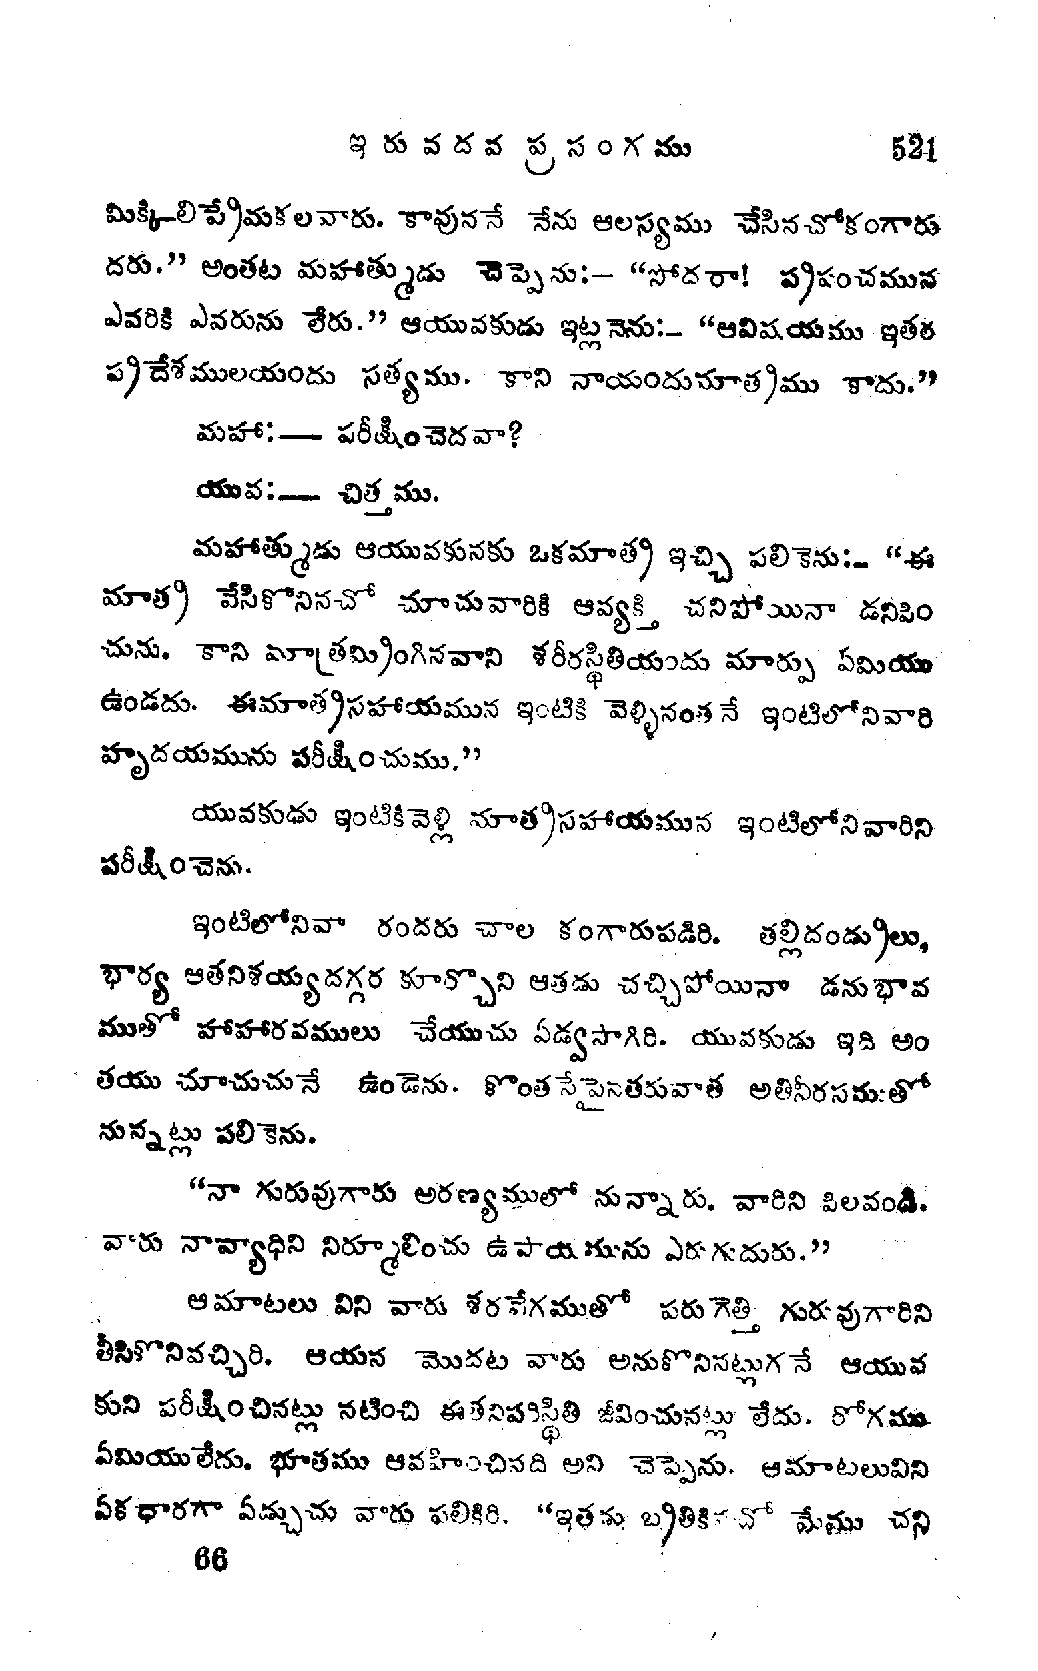 ఇ రు వ ద వ ప్ర స ం గ ము 521
మిక్కిలిప్రేమకలవారు. కావుననే నేను ఆలస్యము చేసినచోకంగారు
దరు." అంతట మహాత్ముడు చెప్పెను:— "సోదరా! ప్రపంచమున
ఎవరికి ఎవరును లేరు." ఆయువకుడు ఇట్లనెను:— "ఆవిషయము ఇతర
ప్రదేశములయందు సత్యము. కాని నాయందుమాత్రము కాదు."
మహా:— పరీక్షించెదవా?
యువ:— చిత్తము.
మహాత్ముడు ఆయువకునకు ఒకమాత్ర ఇచ్చి పలికెను:— "ఈ
మాత్ర వేసికొనినచో చూచువారికి ఆవ్యక్తి చనిపోయినా డనిపిం
చును. కాని మాత్రమ్రింగినవాని శరీరస్థితియందు మార్పు ఏమియు
ఉండదు. ఈమాత్రసహాయమున ఇంటికి వెళ్ళినంతనే ఇంటిలోనివారి
హృదయమును పరీక్షించుము."
యువకుడు ఇంటికివెళ్లి మాత్రసహాయమున ఇంటిలోనివారిని
పరీక్షించెను.
ఇంటిలోనివా రందరు చాల కంగారుపడిరి. తల్లిదండ్రులు,
భార్య ఆతనిశయ్యదగ్గర కూర్చొని ఆతడు చచ్చిపోయినా డనుభావ
ముతో హాహారవములు చేయుచు ఏడ్వసాగిరి. యువకుడు ఇది అం
తయు చూచుచునే ఉండెను. కొంతసేపైనతరువాత అతినీరసముతో
నున్నట్లు పలికెను.
"నా గురువుగారు అరణ్యములో నున్నారు. వారిని పిలవండి.
వారు నావ్యాధిని నిర్మూలించు ఉపాయమును ఎరుగుదురు."
ఆమాటలు విని వారు శరవేగముతో పరుగెత్తి గురువుగారిని
తీసికొనివచ్చిరి. ఆయన మొదట వారు అనుకొనినట్లుగనే ఆయువ
కుని పరీక్షించినట్లు నటించి ఈతనిపరిస్థితి జీవించునట్లు లేదు. రోగము
ఏమియులేదు. భూతము ఆవహించినది అని చెప్పెను. ఆమాటలువిని
ఏకధారగా ఏడ్చుచు వారు పలికిరి. "ఇతడు బ్రతికినచో మేము చని
66